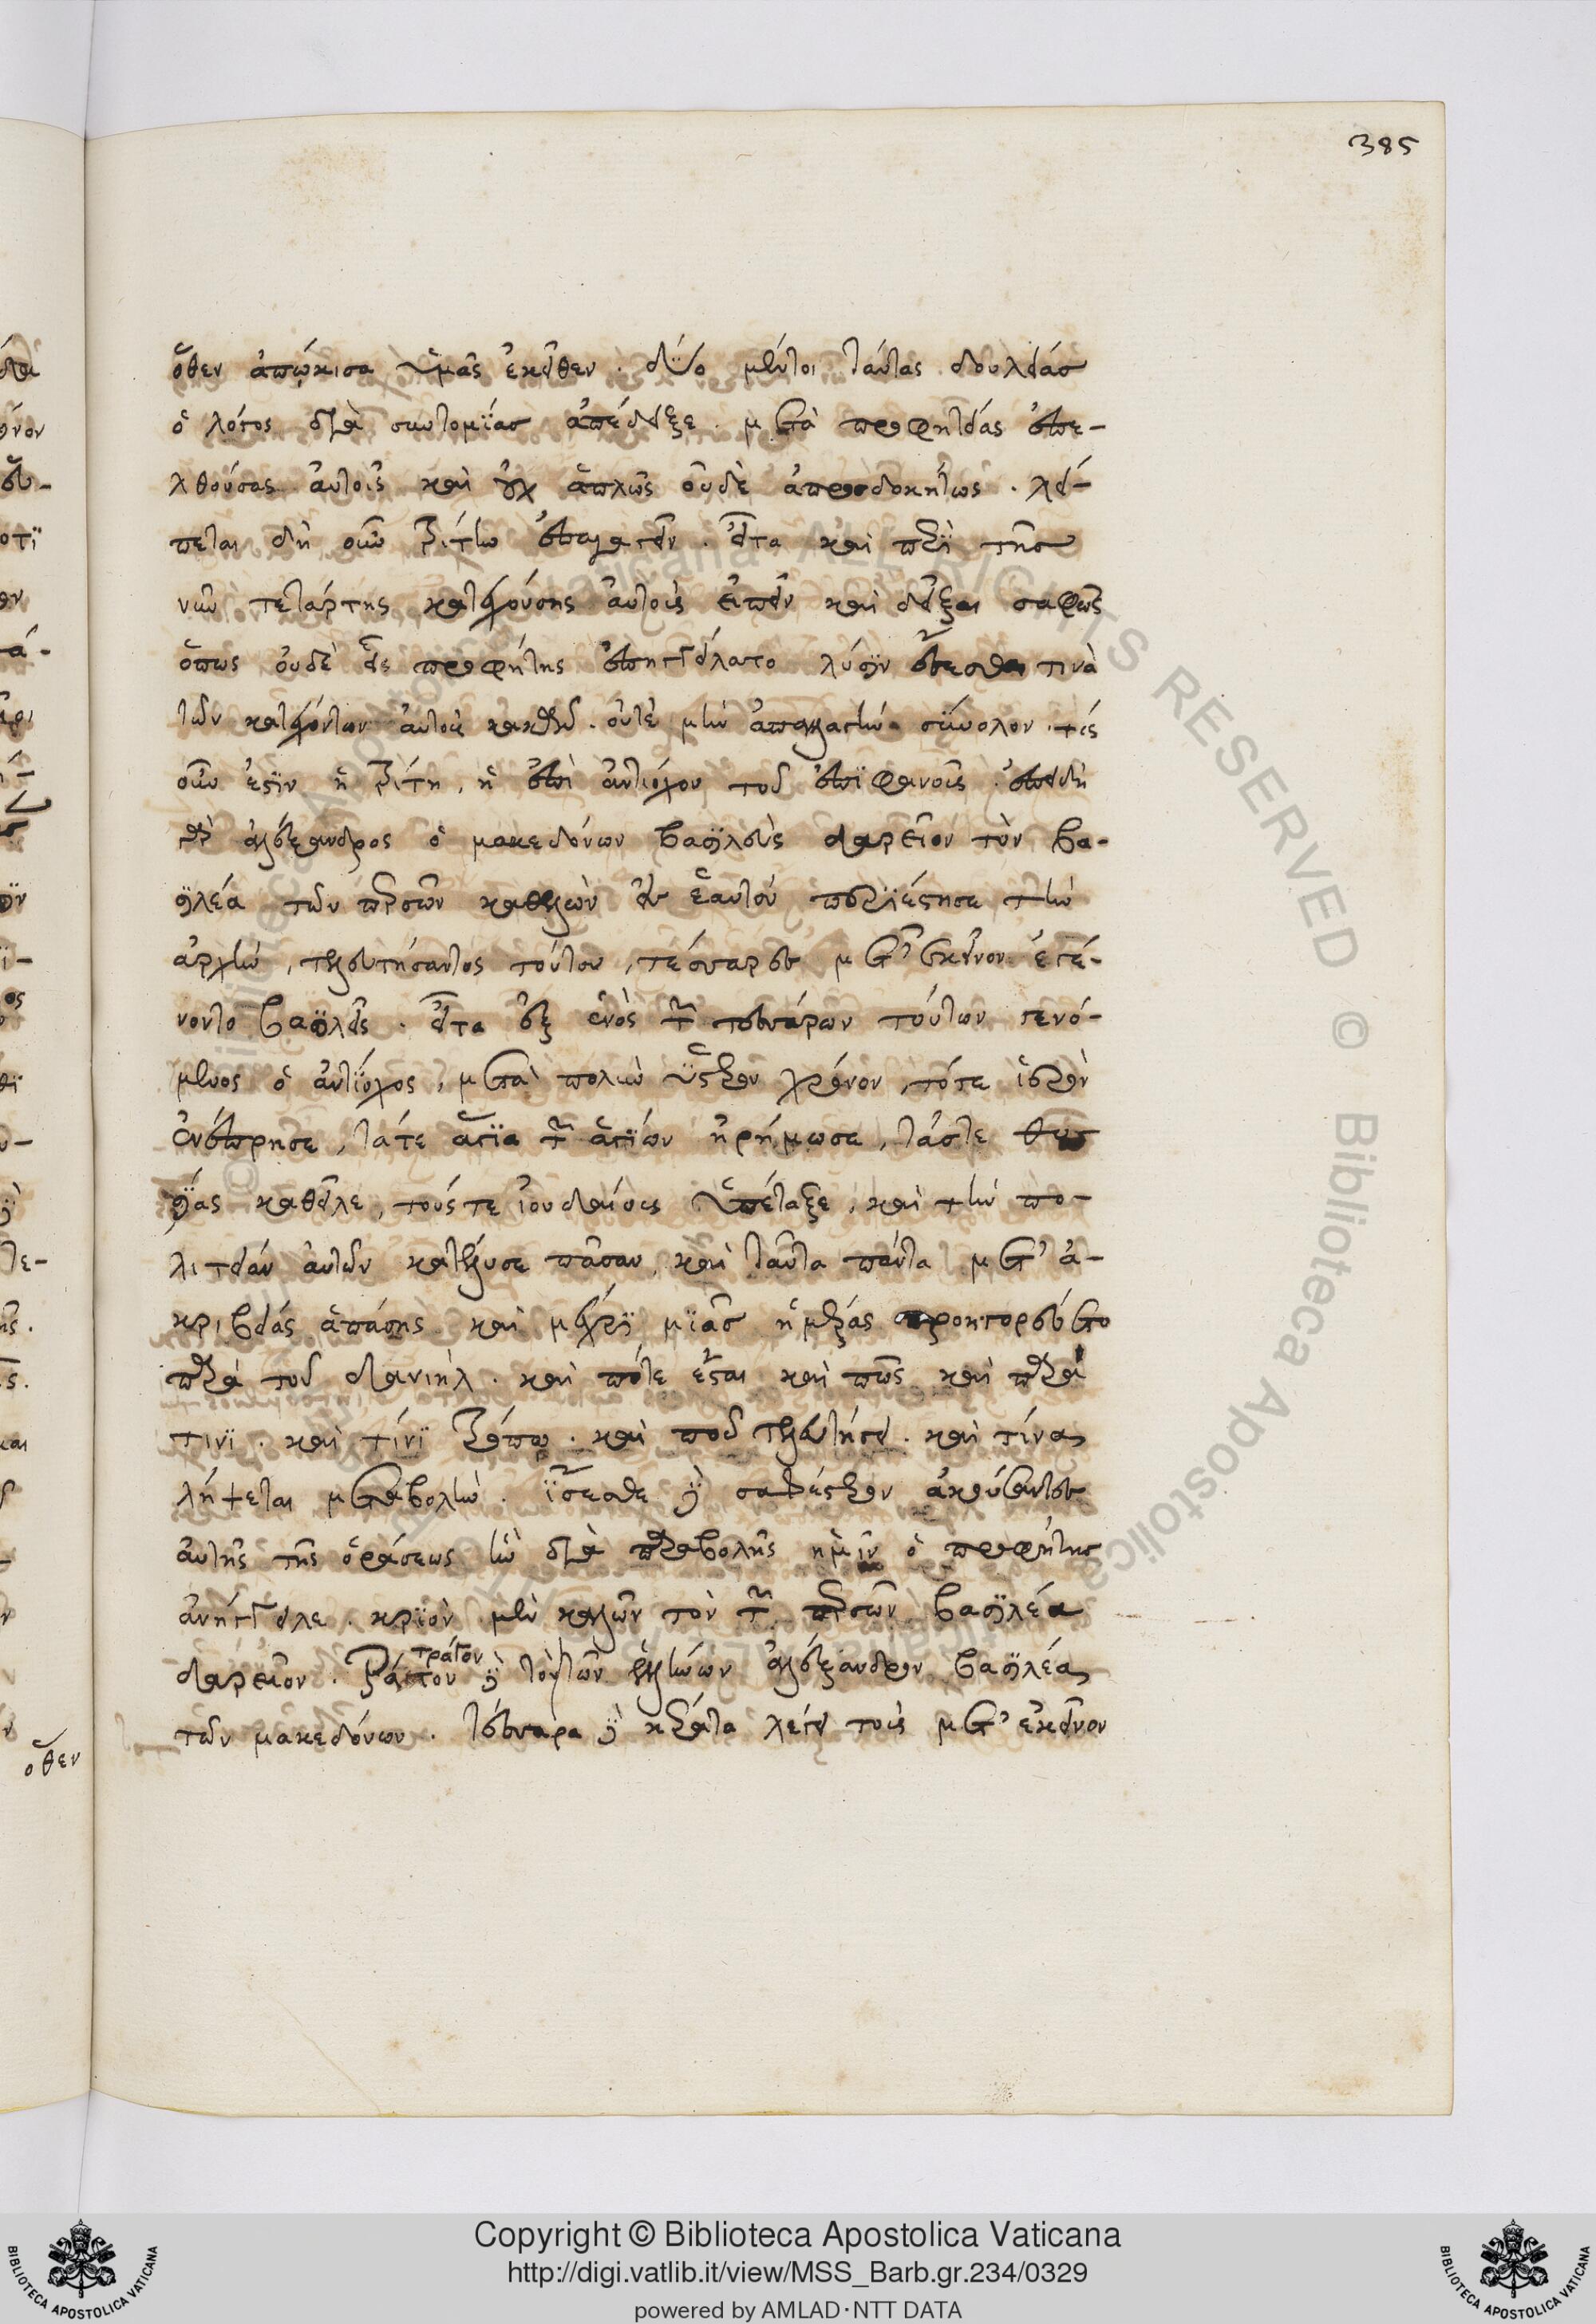 385
ὅθεν ἀπῴκισα ὑμᾶς ἐκεῖθεν. δύο μέντοι ταύτας δουλείας
ὁ λόγος διὰ συντομίας ἀπέδειξε. μετὰ προφητείας ἐπε-
λθούσας αὐτοῖς καὶ οὐχ ἁπλῶς οὐδὲ ἀπροσδοκήτως. λεί-
πεται δὴ οὖν τρίτην ἐπαγαγεῖν. εἶτα καὶ περὶ τῆς
νῦν τετάρτης κατεχούσης αὐτοὺς εἰπεῖν καὶ δεῖξαι σαφῶς
ὅπως οὐδὲ εἷς προφήτης ἐπηγγείλατο λύσιν ἔσεσθαι τινὰ
τῶν κατεχόντων αὐτοὺς κακῶν. οὐτὲ μὴν ἀπαλλαγὴν σύνολον. τίς
οὖν ἐστὶν ἡ τρίτη, ἡ ἐπὶ ἀντιόχου τοῦ ἐπιφανοῦς. ἐπειδὴ
γὰρ ἀλέξανδρος ὁ μακεδόνων βασιλεὺς δαρεῖον τὸν βα-
σιλέα τῶν περσῶν καθελὼν εἰς ἑαυτὸν περιέστησε τὴν
ἀρχὴν, τελευτήσαντος τούτου, τέσσαρες μετ' ἐκεῖνον ἐγέ-
νοντο βασιλεῖς. εἶτα ἐξ ἑνὸς τῶν τεσσάρων τούτων γενό-
μενος ὁ ἀντίοχος, μετὰ πολὺν ὕστερον χρόνον, τότε ἱερὸν
ἐνέπρησε, τάτε ἅγια τῶν ἁγίων ἠρήμωσε, τάστε θυ
σίας καθεῖλε, τούς τε ἰουδαίους ὑπέταξε, καὶ τὴν πο-
λιτείαν αὐτῶν κατέλυσε πᾶσαν, καὶ ταῦτα πάντα μετ' ἀ-
κριβείας ἁπάσης καὶ μέχρι μιᾶς ἡμέρας προηγορεύετο
παρὰ τοῦ δανιήλ. καὶ πότε ἔσται καὶ πῶς καὶ παρὰ
τινὶ. καὶ τίνι τρόπῳ. καὶ ποῦ τελευτήσει. καὶ τίνα
λήψεται μεταβολὴν. εἴσεσθε δὲ σαφέστερον ἀκούσαντες
αὐτῆς τῆς ὁράσεως ἣν διὰ παραβολῆς ἡμῖν ὁ προφήτης
ἀνήγγειλε. κριὸν μὲν καλῶν τὸν τῶν περσῶν βασιλέα
δαρεῖον. τράγον δὲ τὸν τῶν ἑλλήνων ἀλέξανδρον βασιλέα
τράγον
τῶν μακεδόνων. τέσσαρα δὲ κέρατα λέγει τοὺς μετ' ἐκεῖνον
ὅθεν
Copyright © Biblioteca Apostolica Vaticana
http://digi.vatlib.it/view/MSS_Barb.gr.234/0329
powered by AMLAD·NTT DATA
BIBLIOTECA APOSTOLICA VATICANA
BIBLIOTECA APOSTOLICA VATICANA